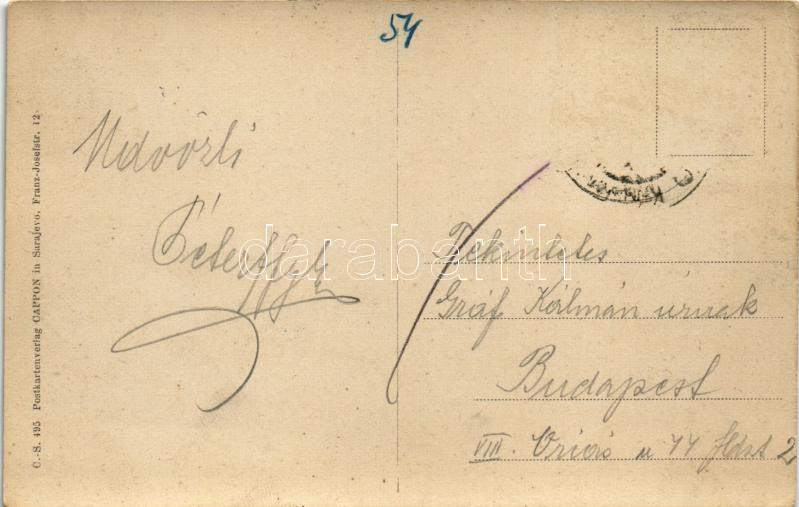 54
C.-S. 495 Postkartenverlag CAPPON in Sarajevo, Franz-Josefstr. 12
Üdvözli
Péterffy
Tekintetes
Gráf Kálmán úrnak
Budapest
VIII. u 44
darabanth